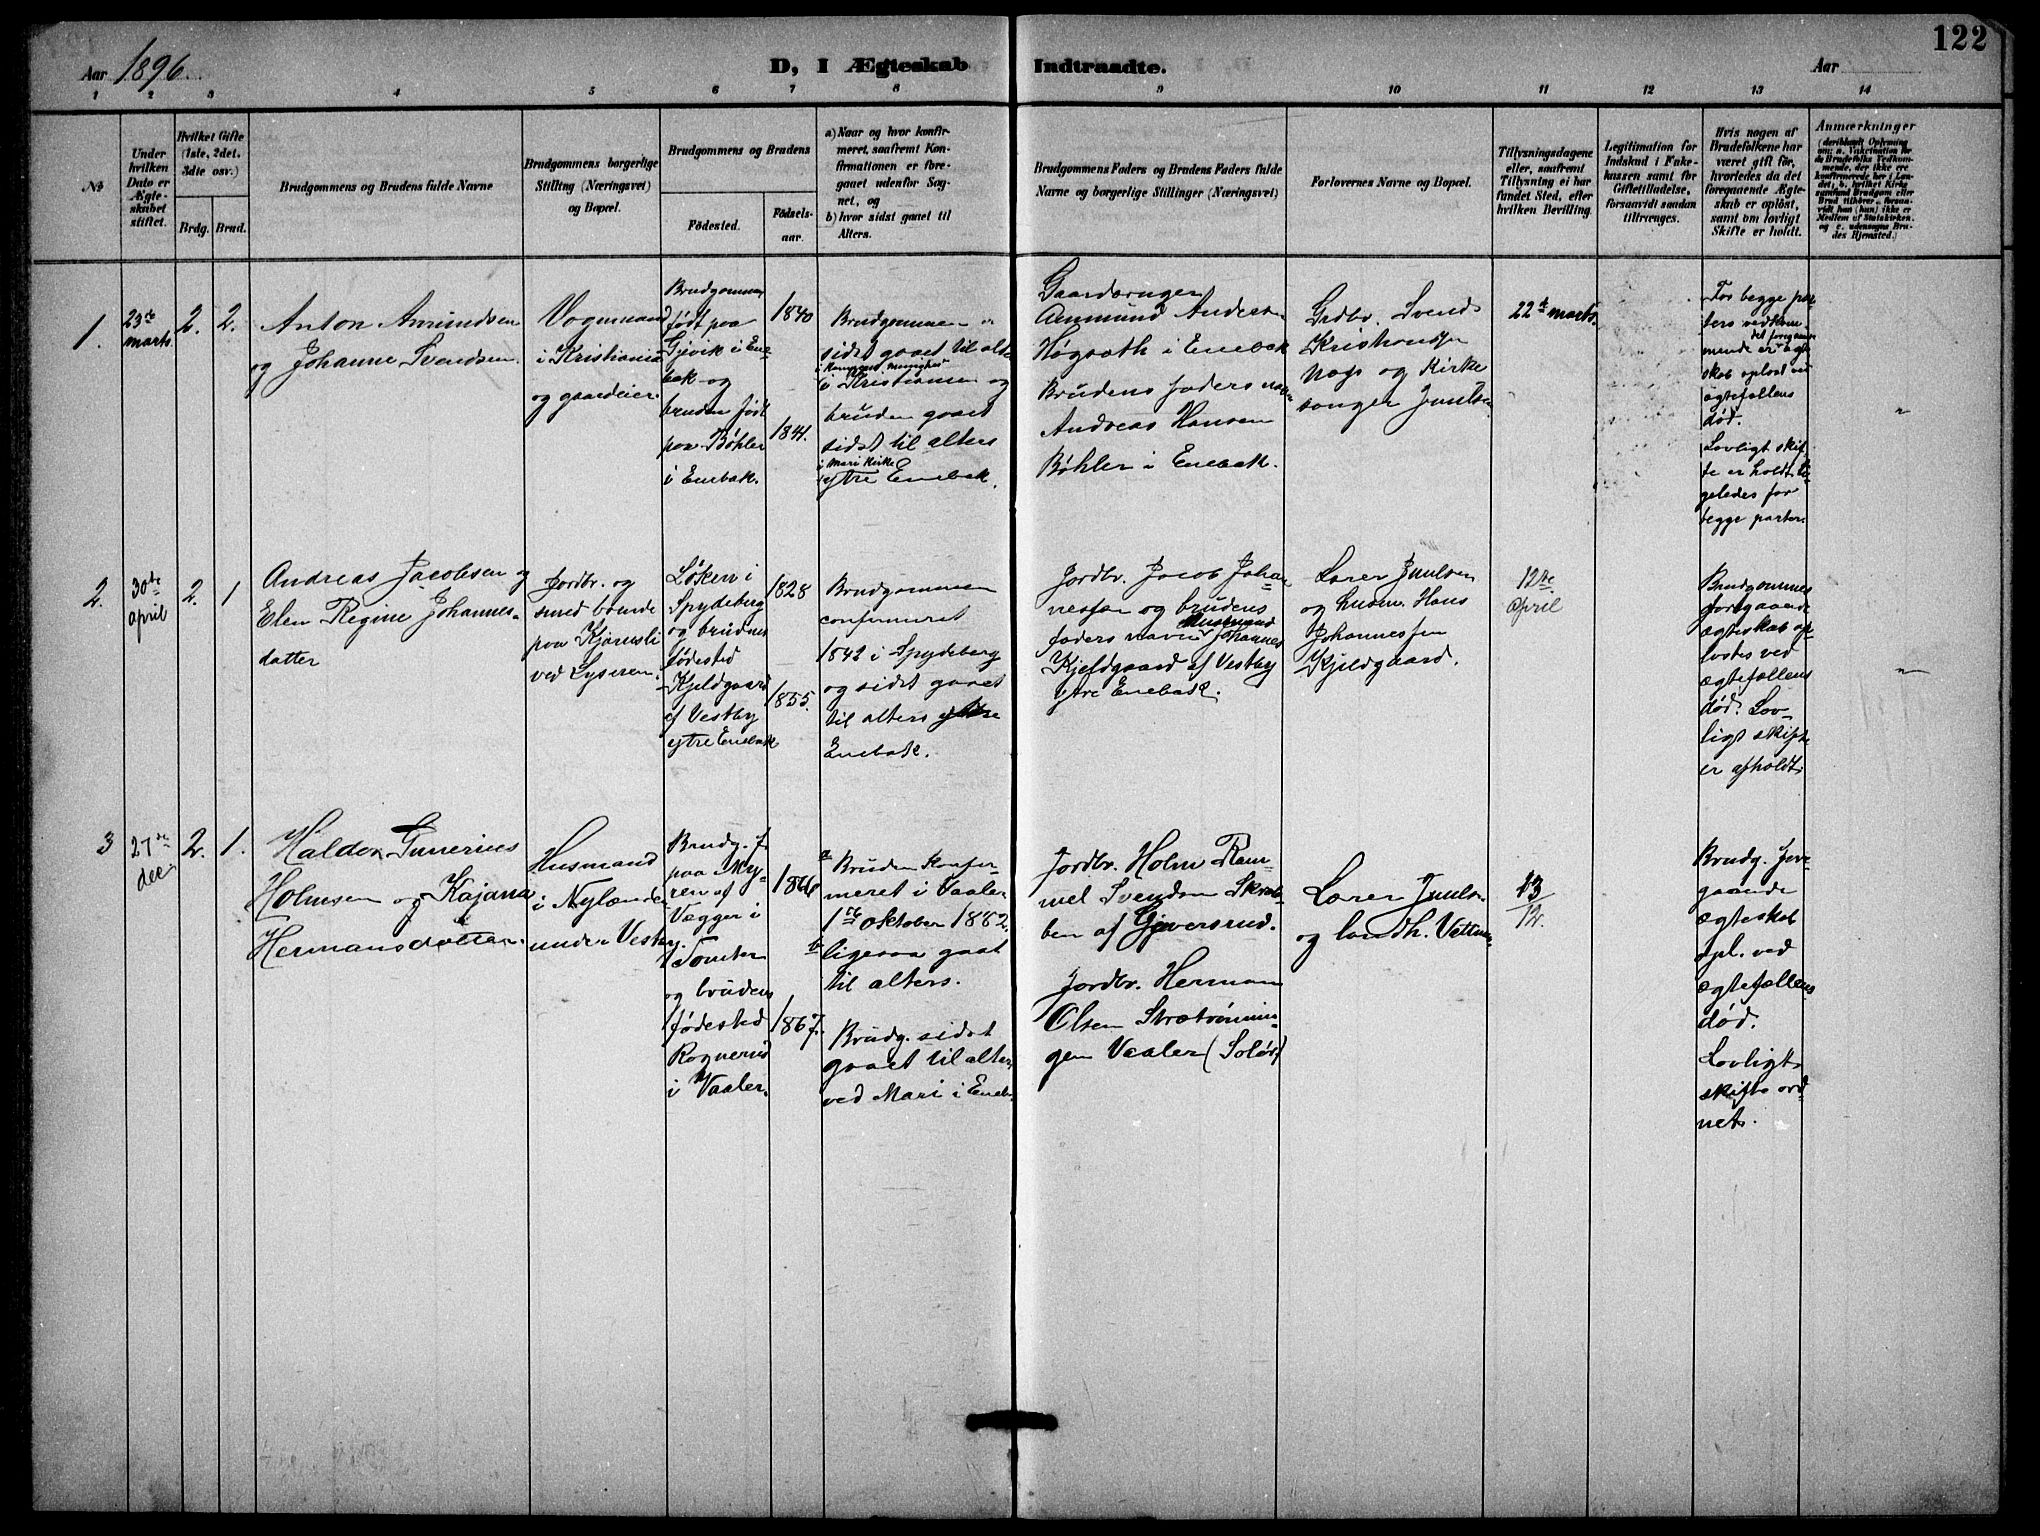 122
Aar 1896.
D, I Ægteskab Indtraadte.
Aar
1 2 3 4 5 6 7 8 9 10 11 12 13 14
No
Under
hvilken
Dato er
Ægte-
skabet
stiftet.
Hvilket Gifte
(1ste, 2det,
3dte osv.)
Brdg. Brud.
Brudgommens og Brudens fulde Navne
Brudgommens borgerlige
Stilling (Næringsvei)
og Bopæl.
Brudgommens og Brudens
Födested.
Födsels-
aar.
a) Naar og hvor konfir-
meret, saafremt Kon-
firmationen er fore-
gaaet udenfor Sog-
net, og
b) hvor sidst gaaet til
Alters.
Brudgommens Faders og Brudens Faders fulde
Navne og borgerlige Stillinger (Næringsvei)
Forlovernes Navne og Bopæl.
Tillysningsdagene
eller, saafremt
Tillysning ei har
fundet Sted, efter
hvilken Bevilling.
Legitimation for
Indskud i Enke-
kassen samt for
Giftetilladelse,
forsaavidt saadan
tiltrænges.
Hvis nogen af
Brudefolkene har
været gift för,
hvorledes da det
foregaaende Ægte-
skab er oplöst,
samt om lovligt
Skifte er holdt.
Anmærkninger
(deriblandt Oplysning
om: a. Vakcination for
de Brudefolks Vedkom-
mende, der ikke ere
konfirmerede her i Lan-
det, b. hvilket Kirke-
samfund Brudgom eller
Brud tilhörer, forsaa-
vidt han (hun) ikke er
Medlem af Statskirken,
og c. udensogns Bru-
des Hjemsted.)
1.
23de
marts.
2. 2.
Anton Amundsen
og Johanne Svendsen.
Vognmand
i Kristiania
og gaardeier.
Brudgommen
født paa
Gjevik i Ene-
bak og
bruden født
paa Bøhler
i Enebak.
1840
1841.
Brudgommen er
sidst gaaet til alters
i Kampens menighed
i Kristiania og
bruden gaaet
sidst til alters
i Mari Kirke
ytre Enebak.
Gaardbruger
Ammund Anders.
Høgsæth i Enebak
Brudens faders navn
Andreas Hansen
Bøhler i Enebak.
Grdbr. Svend
Kristiansen
og Kirke
sanger Juulsen
22de marts.
For begge par-
ters vedkom-
mende er det foregaaende ægte
skab opløst ved
ægtefællens
død.
Lovligt skif-
te er holdt li-
geledes for
begge parter.
"
2.
30te
april
2. 1
Andreas Jacobsen og
Elen Regine Johannes-
datter
Jordbr. og
smed boende
paa Kjærnsli
ved Lyseren.
Løken i
Spydeberg
og brudens
fødested
Kjeldgaard
af Vestby
ytre Enebak
1828
1855.
Brudgommen
confirmeret
1842 i Spydeberg
og sidst gaaet
til alters ytre
Enebak.
Jordbr. Jacob Johan-
nessen og brudens
faders navn Husmand Johannes
Kjeldgaard af Vestby
ytre Enebak.
Lærer Juulsen
og husm. Hans
Johannessen
Kjeldgaard.
12te
april
Brudgommens
foregaaende
ægteskab op-
løstes ved
ægtefællens
død. Lov-
ligt skifte
er afholdt.
"
3
27de
dec.
2. 1.
Haldor Gunerius
Holmsen og Kajana
Hermansdatter.
Husmand
i Nylænde
under Vestby.
Brudg. f.
paa My-
ren af
Vegger i
Tomter
og brudens
fødested
Rognerud
i Vaaler.
1866
1867.
a Bruden konfir-
meret i Vaaler
1ste oktober 1882.
b ligesaa gaaet
til alters.
Brudg. sidst
gaaet til alters
ved Mari i Eneb.
Jordbr. Holm Ram-
mel Svendsen Skrab-
ben af Gjeversrud.
Jordbr. Herman
Olsen Strætrønnin-
gen Vaaler (Solør)
Lærer Juulsen
og landh. Vettum
13/12.
Brudg. fore-
gaaende
ægteskab
opl. ved
ægtefællens
død.
Lovligt
skifte ord-
net.